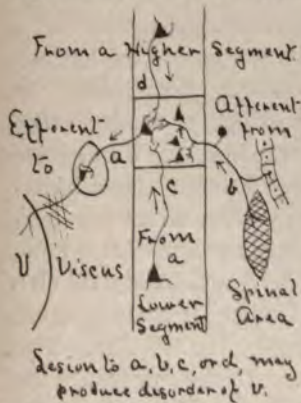 From a Higher Segment
d
Efferent to
Afferent from
a
b
c
From a
Lower Segment
V
Viscus
Spinal Area
Lesion to a, b, c, or d, may
produce disorder of v.